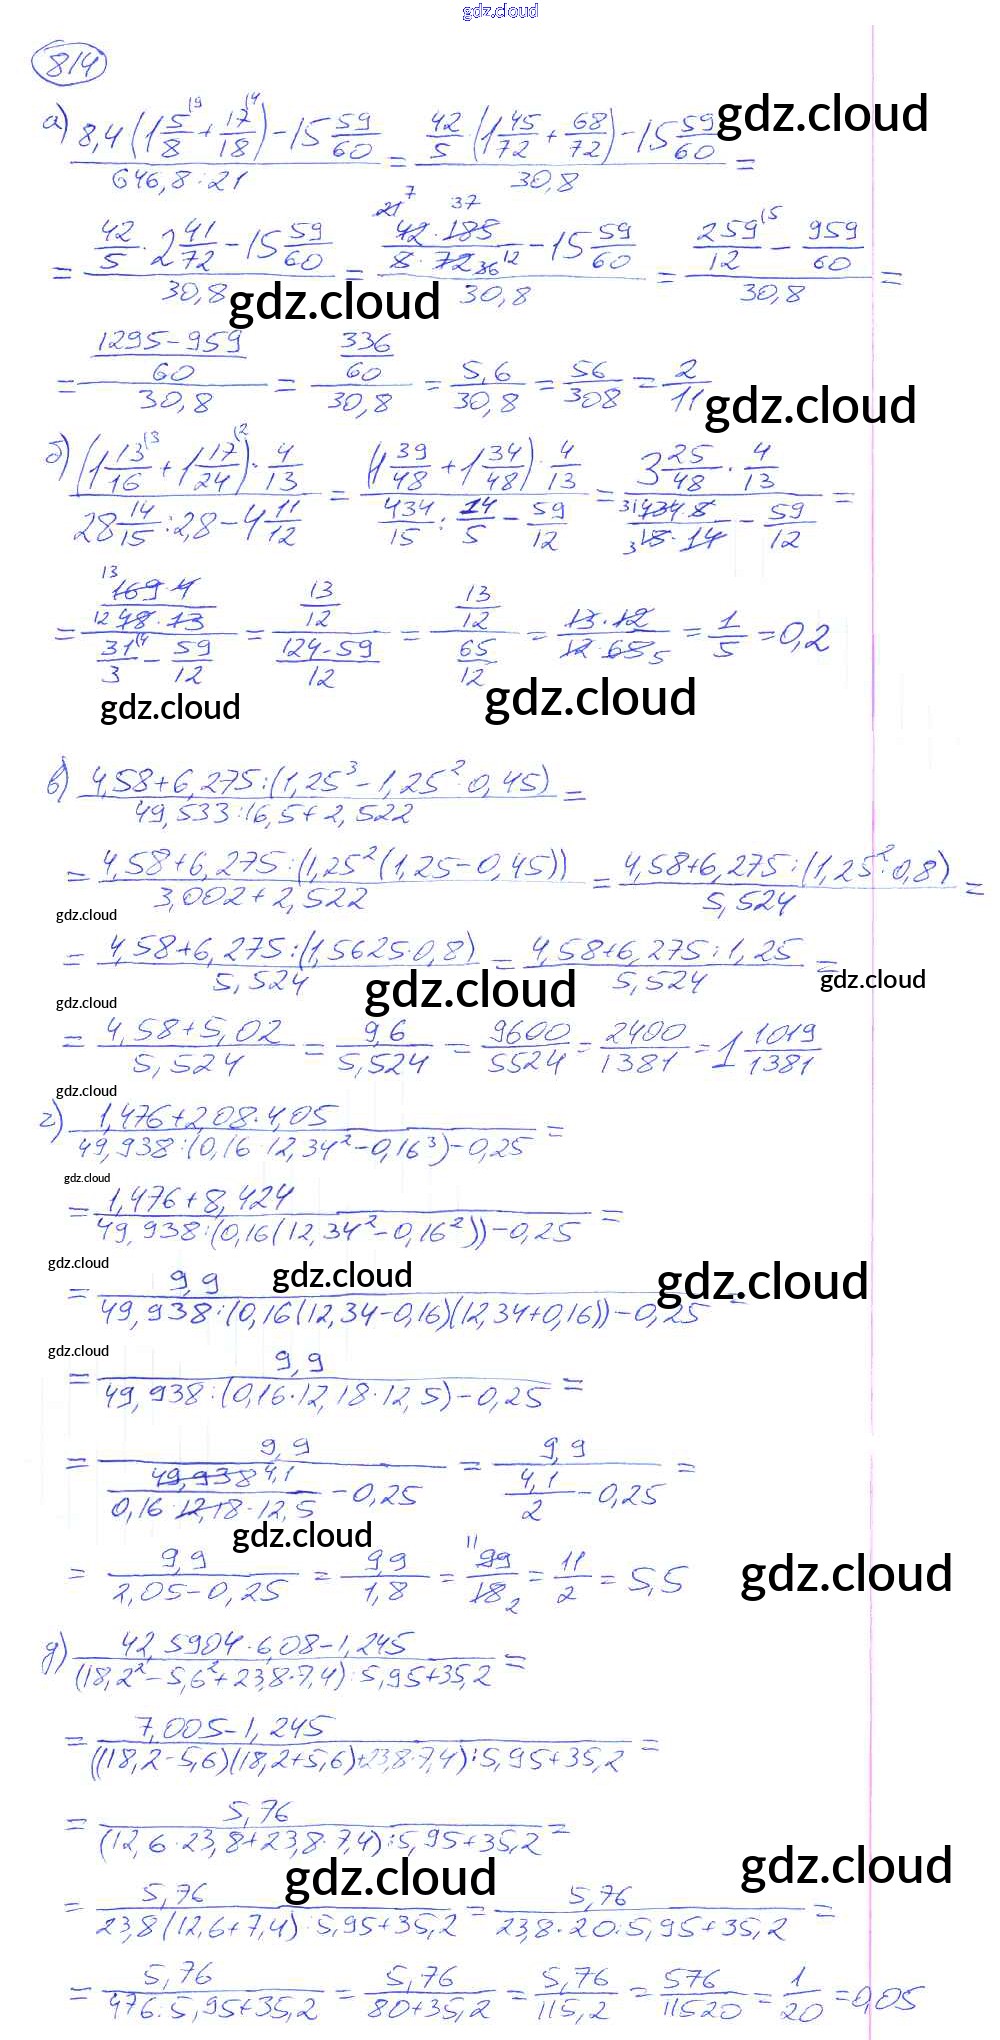 gdz.cloud
814
а) (8,4 (1 5/8 + 17/18) - 15 59/60) / (646,8 : 21) = (42/5 · (1 45/72 + 68/72) - 15 59/60) / 30,8 =
gdz.cloud
= (42/5 · 2 41/72 - 15 59/60) / 30,8 = ((42 · 185) / (8 · 72) - 15 59/60) / 30,8 = (259/12 - 959/60) / 30,8 =
gdz.cloud
= ((1295 - 959) / 60) / 30,8 = (336/60) / 30,8 = 5,6/30,8 = 56/308 = 2/11
gdz.cloud
б) ((1 13/16 + 1 17/24) · 4/13) / (28 14/15 : 2,8 - 4 11/12) = ((1 39/48 + 1 34/48) · 4/13) / (434/15 : 14/5 - 59/12) = (3 25/48 · 4/13) / ((434 · 5) / (15 · 14) - 59/12) =
= ((169 · 4) / (48 · 13)) / (31/3 - 59/12) = (13/12) / ((124 - 59) / 12) = (13/12) / (65/12) = (13 · 12) / (12 · 65) = 1/5 = 0,2
gdz.cloud gdz.cloud
в) (4,58 + 6,275 : (1,25³ - 1,25² · 0,45)) / (49,533 : 16,5 + 2,522) =
= (4,58 + 6,275 : (1,25² (1,25 - 0,45))) / (3,002 + 2,522) = (4,58 + 6,275 : (1,25² · 0,8)) / 5,524 =
gdz.cloud
= (4,58 + 6,275 : (1,5625 · 0,8)) / 5,524 = (4,58 + 6,275 : 1,25) / 5,524 =
gdz.cloud gdz.cloud gdz.cloud
= (4,58 + 5,02) / 5,524 = 9,6/5,524 = 9600/5524 = 2400/1381 = 1 1019/1381
gdz.cloud
г) (1,476 + 2,08 · 4,05) / (49,938 : (0,16 · 12,34² - 0,16³) - 0,25) =
gdz.cloud
= (1,476 + 8,424) / (49,938 : (0,16 (12,34² - 0,16²)) - 0,25) =
gdz.cloud gdz.cloud gdz.cloud
= 9,9 / (49,938 : (0,16 (12,34 - 0,16)(12,34 + 0,16)) - 0,25) =
gdz.cloud
= 9,9 / (49,938 : (0,16 · 12,18 · 12,5) - 0,25) =
= 9,9 / (49,938 / (0,16 · 12,18 · 12,5) - 0,25) = 9,9 / (4,1/2 - 0,25) =
gdz.cloud
= 9,9 / (2,05 - 0,25) = 9,9/1,8 = 99/18 = 11/2 = 5,5
gdz.cloud
д) (42,5904 · 6,08 - 1,245) / ((18,2² - 5,6² + 23,8 · 7,4) : 5,95 + 35,2) =
= (7,005 - 1,245) / (((18,2 - 5,6)(18,2 + 5,6) + 23,8 · 7,4) : 5,95 + 35,2) =
= 5,76 / ((12,6 · 23,8 + 23,8 · 7,4) : 5,95 + 35,2) =
gdz.cloud gdz.cloud
= 5,76 / (23,8 (12,6 + 7,4) : 5,95 + 35,2) = 5,76 / (23,8 · 20 : 5,95 + 35,2) =
= 5,76 / (476 : 5,95 + 35,2) = 5,76 / (80 + 35,2) = 5,76/115,2 = 576/11520 = 1/20 = 0,05